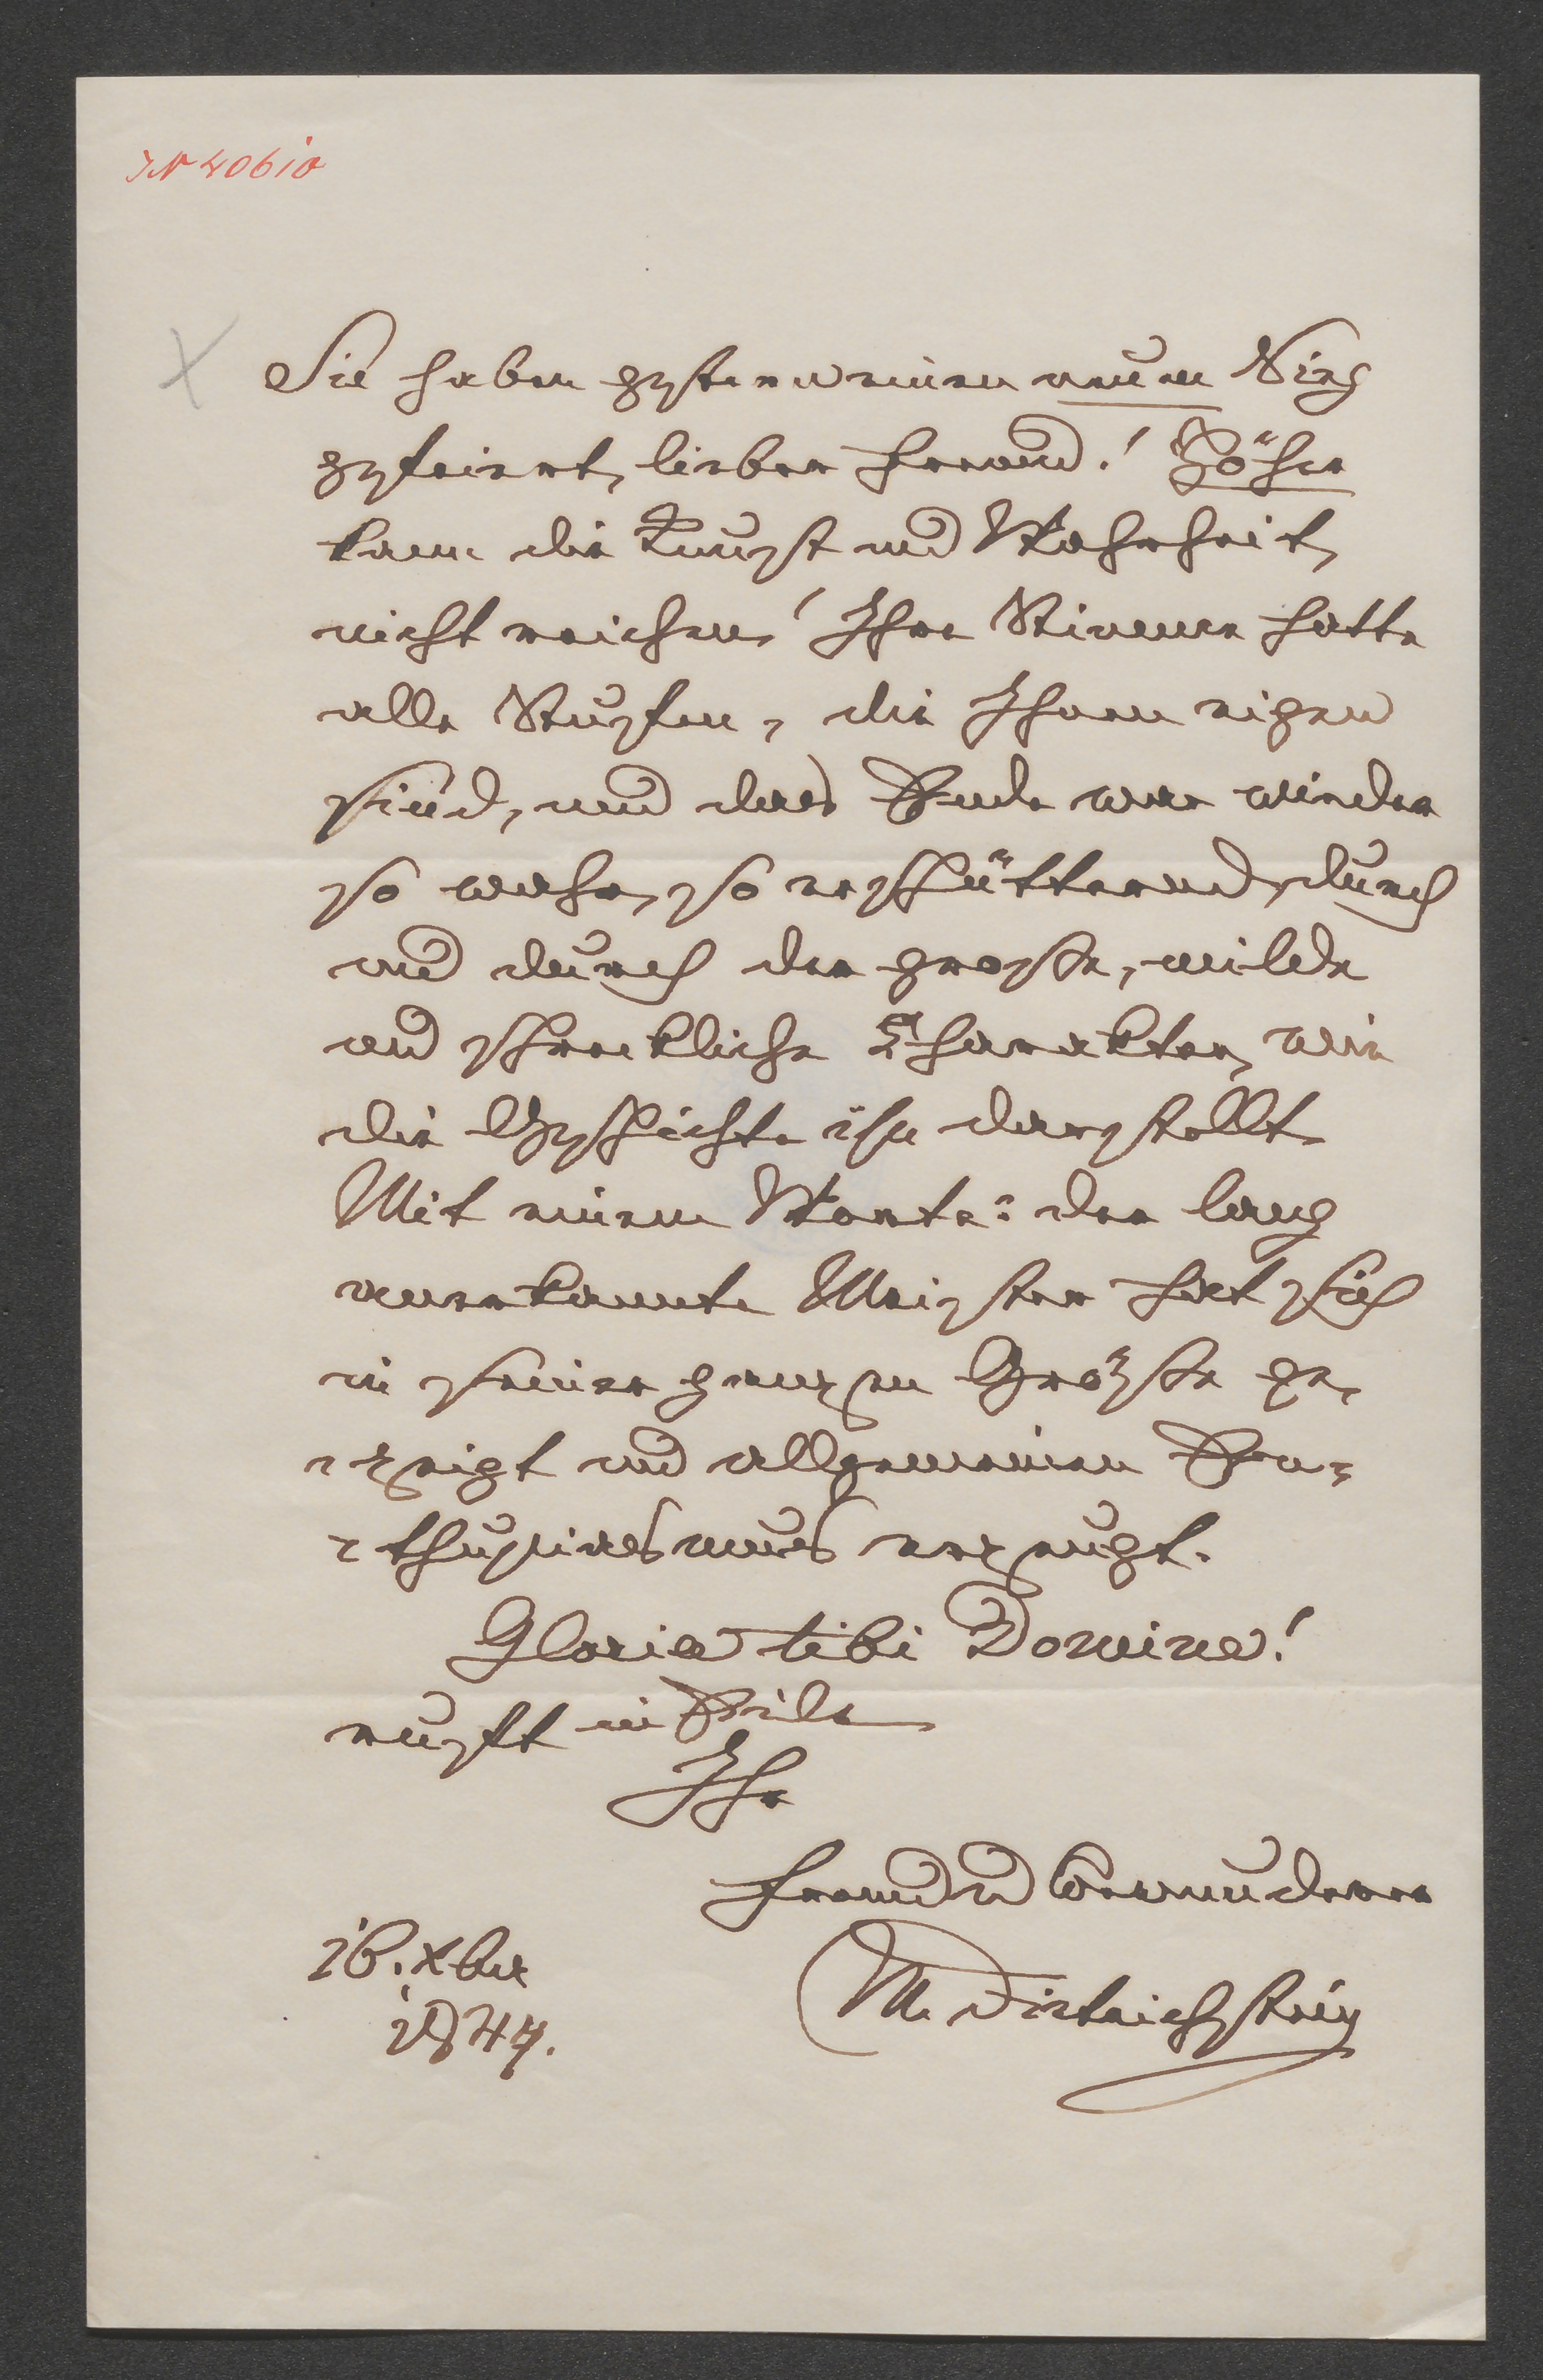 IN 40610
Sie haben gestern einen neuen Sieg
gefeiert, lieber Freund! Höher
kann die Kunst und Wahrheit,
nicht reichen! Ihre Stimme hatte
alle Stufen, die Ihnen eigen
sind, und das Ende war wieder
so wahr, so erschütternd, durch
und durch der große, wilde
und schreckliche Charakter, wie
die Geschichte ihn darstellt.
Mit einem Worte: der lang
anerkannte Meister hat sich
in seiner ganzen Größe ge¬
¬zeigt und allgemeinen En¬
¬thusiasmus erzeugt.
Gloria tibi Domine!
ruft in Eile
Ihr
Freund u Bewunderer
M. Dietrichstein
16. Xber
1844.